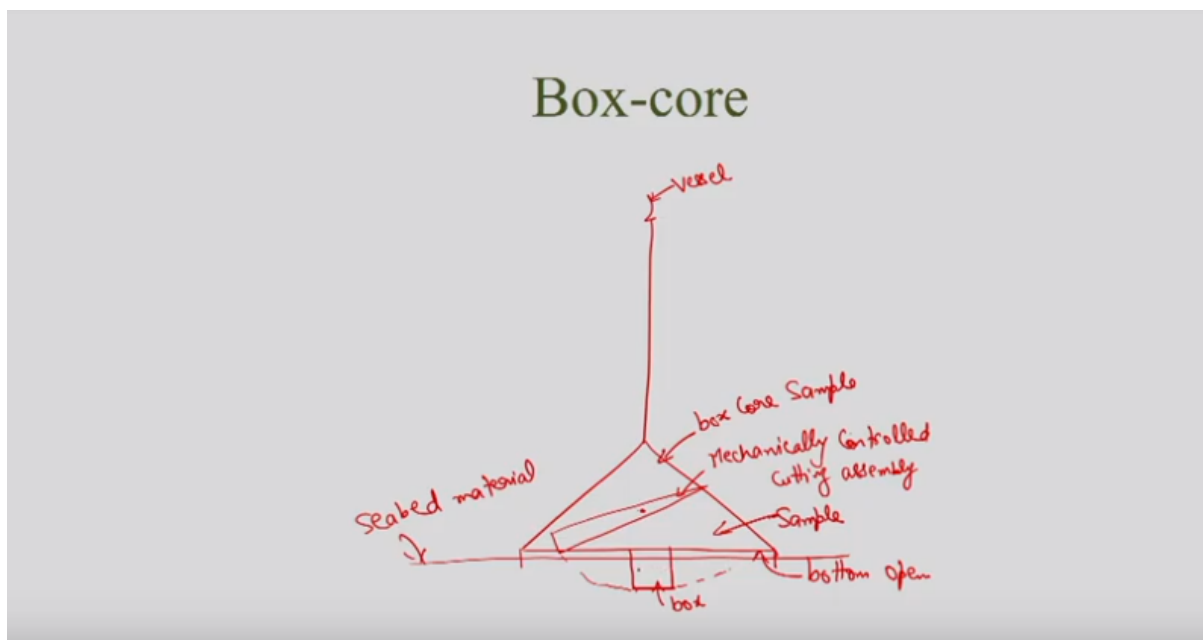 Box-core
Vessel
box Core Sample
Mechanically Controlled
Cutting assembly
Seabed material
Sample
bottom open
box